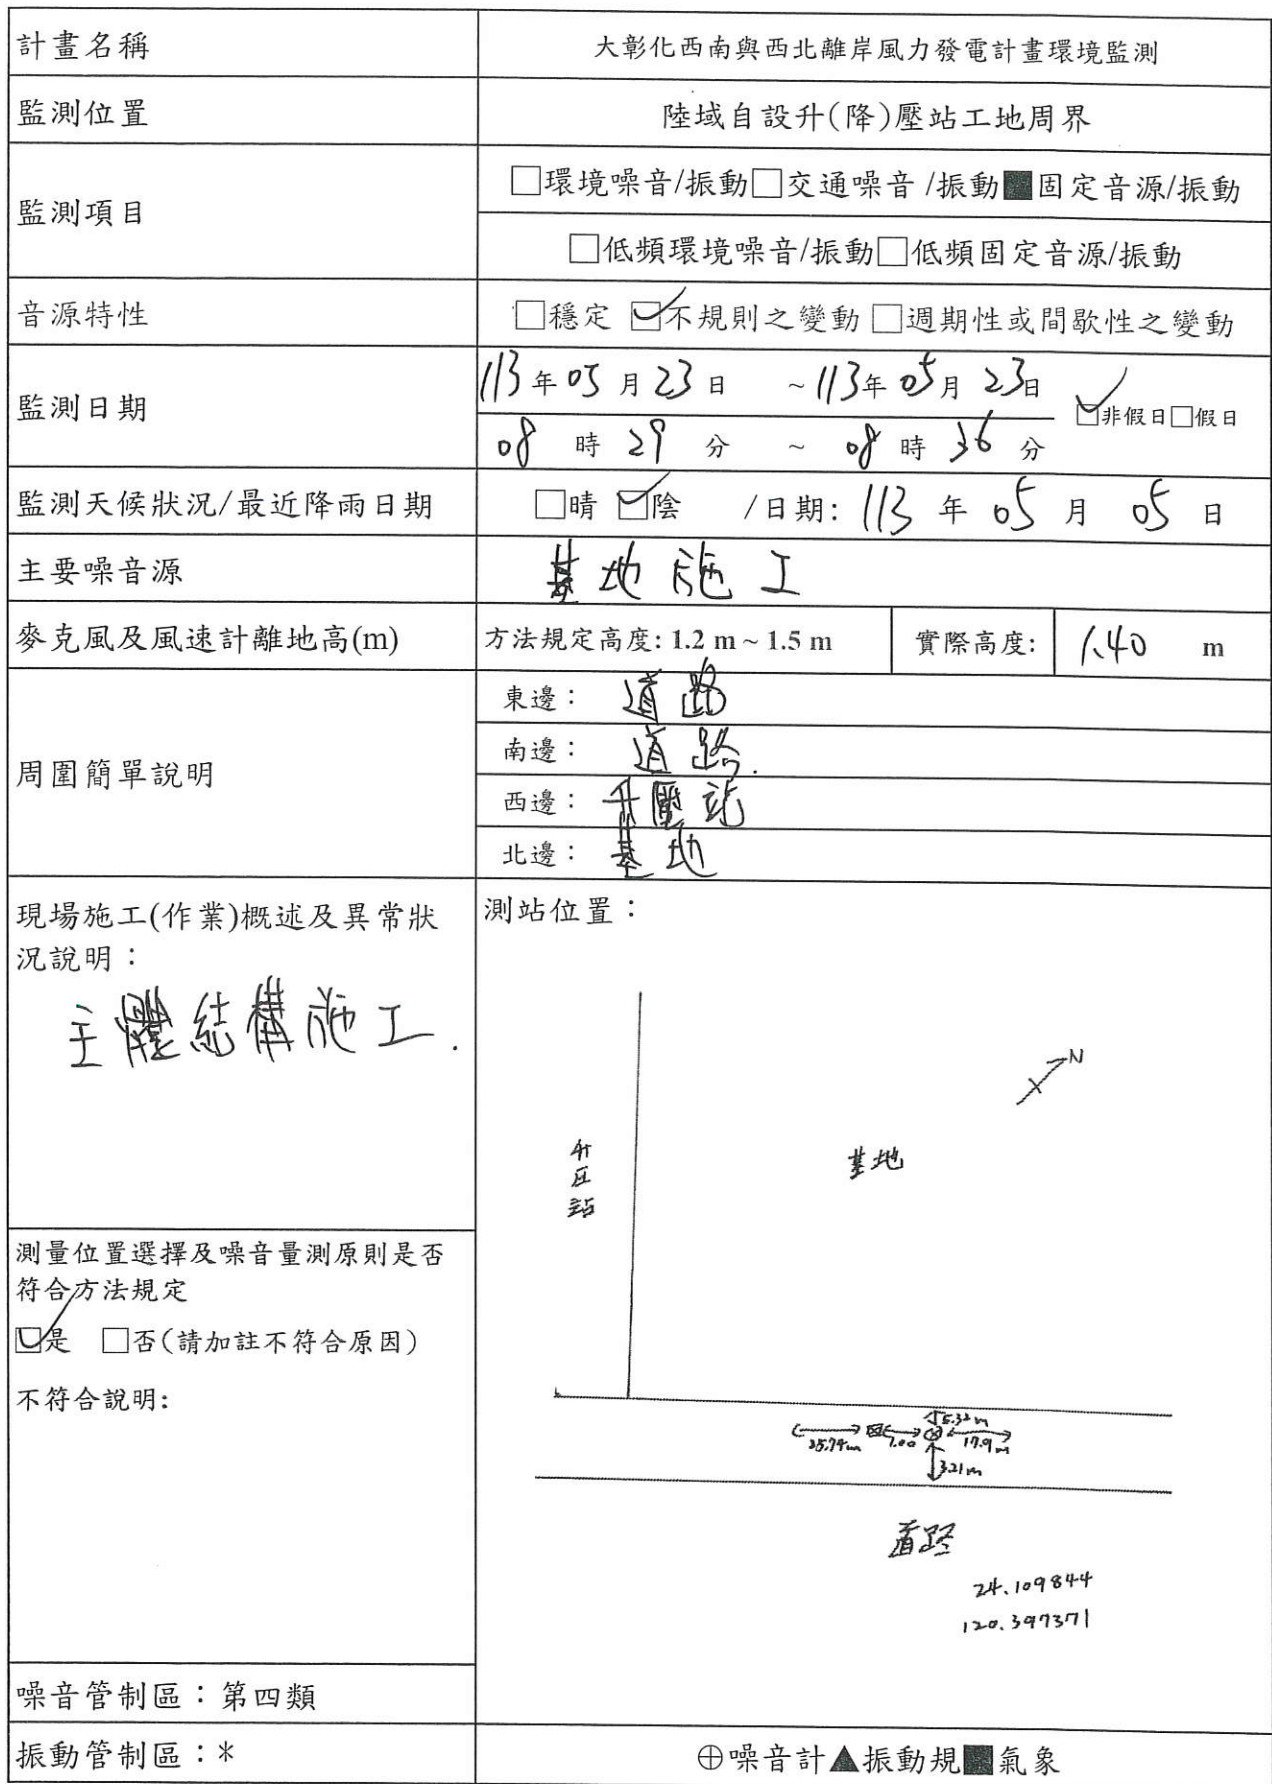 計畫名稱 大彰化西南與西北離岸風力發電計畫環境監測
監測位置 陸域自設升(降)壓站工地周界
監測項目 □環境噪音/振動□交通噪音/振動■固定音源/振動
□低頻環境噪音/振動□低頻固定音源/振動
音源特性 □穩定 ☑不規則之變動 □週期性或間歇性之變動
監測日期 113年05月23日 ~113年05月23日 ☑非假日□假日
08 時 29 分 ~ 08 時 36 分
監測天候狀況/最近降雨日期 □晴 ☑陰 /日期: 113 年 05 月 05 日
主要噪音源 基地施工
麥克風及風速計離地高(m) 方法規定高度: 1.2 m ~ 1.5 m 實際高度: 1.40 m
周圍簡單說明
東邊: 道路
南邊: 道路.
西邊: 升壓站
北邊: 基地
現場施工(作業)概述及異常狀
況說明:
主體結構施工.
測站位置:
N
升压站
基地
測量位置選擇及噪音量測原則是否
符合方法規定
☑是 □否(請加註不符合原因)
不符合說明:
5.32m
35.74m 7.00 17.9m
3.21m
道路
24.109844
120.397371
噪音管制區:第四類
振動管制區:*
⊕噪音計▲振動規■氣象